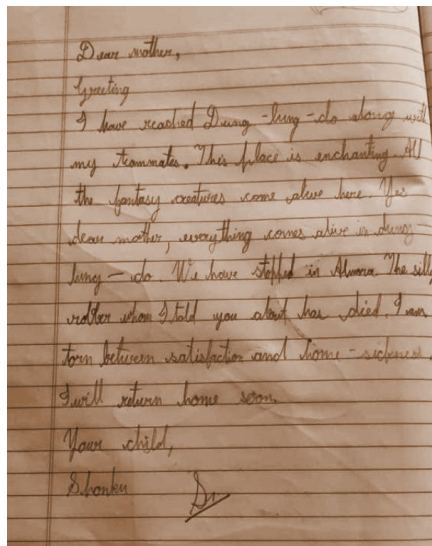 Dear mother,
Greeting
I have reached Dung-lung-do along with
my teammates. This place is enchanting. All
the fantasy creatures come alive here. Yes
dear mother, everything comes alive in dung-
lung-do. We have stopped in Almora. The silly
robber whom I told you about has died. I am
torn between satisfaction and home-sickness.
I will return home soon.
Your child,
Shonku